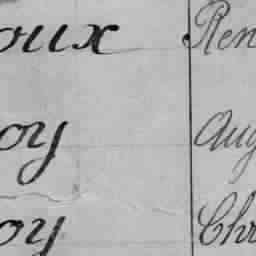 oux Ren
oy Aug
oy Chr